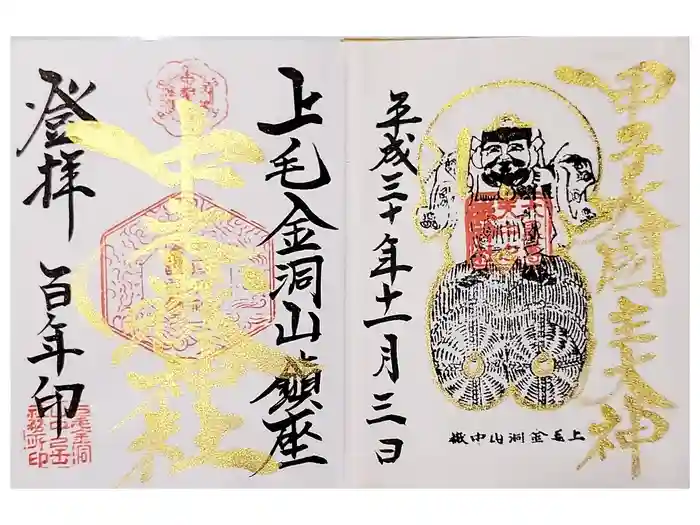 甲子大国主大神
平成三十年十一月三日
上毛金洞山中嶽
上毛金洞山鎮座
中之嶽神社
登拝
百年印